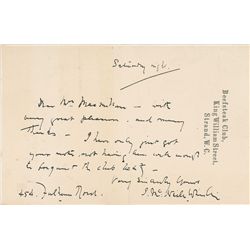 Beefsteak Club,
King William Street,
Strand, W.C.
Saturday
Dear Mrs Macmillan — with
very great pleasure. and many
thanks — I have only just got
your note, not having been
to the club
Very sincerely Yours
J. McNeill Whistler
454. Fulham Road.